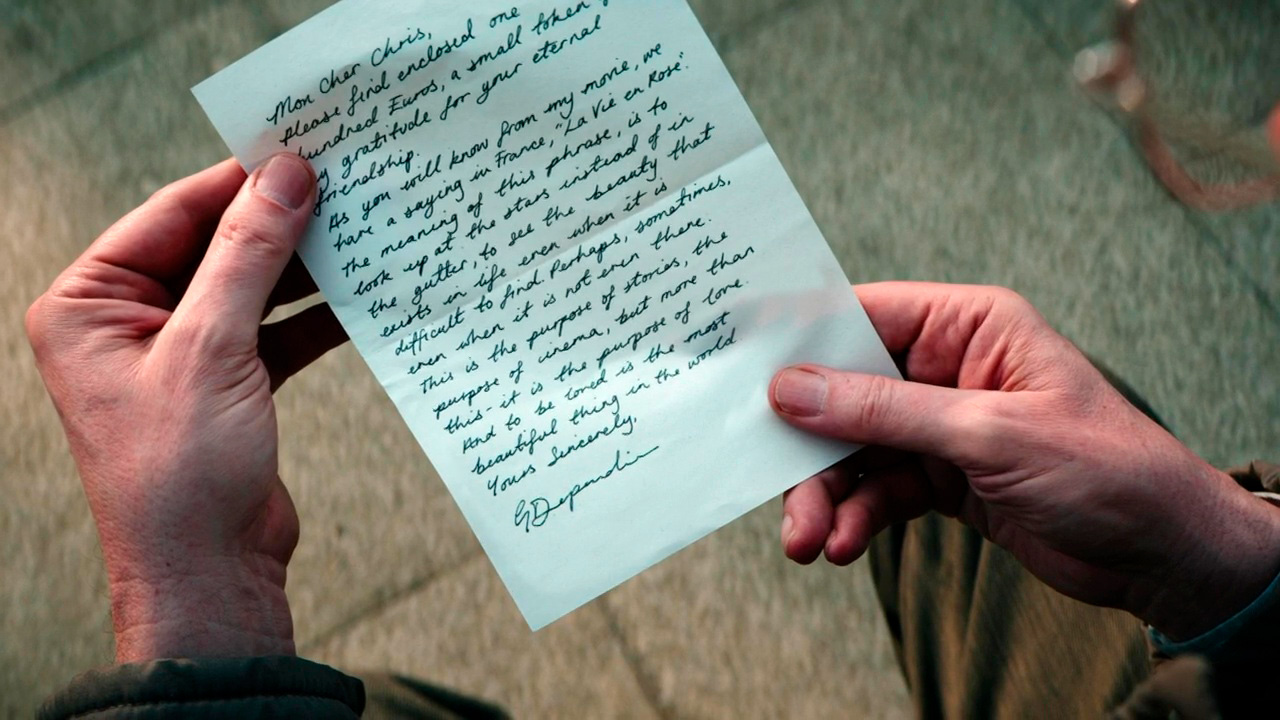 Mon Cher Chris,
Please find enclosed one
hundred Euros, a small token
my gratitude for your eternal
friendship.
As you will know from my movie, we
have a saying in France, "La Vie en Rose".
the meaning of this phrase, is to
look up at the stars instead of in
the gutter, to see the beauty that
exists in life even when it is
difficult to find. Perhaps, sometimes,
even when it is not even there.
This is the purpose of stories, the
purpose of cinema, but more than
this- it is the purpose of love.
And to be loved is the most
beautiful thing in the world
Yours Sincerely,